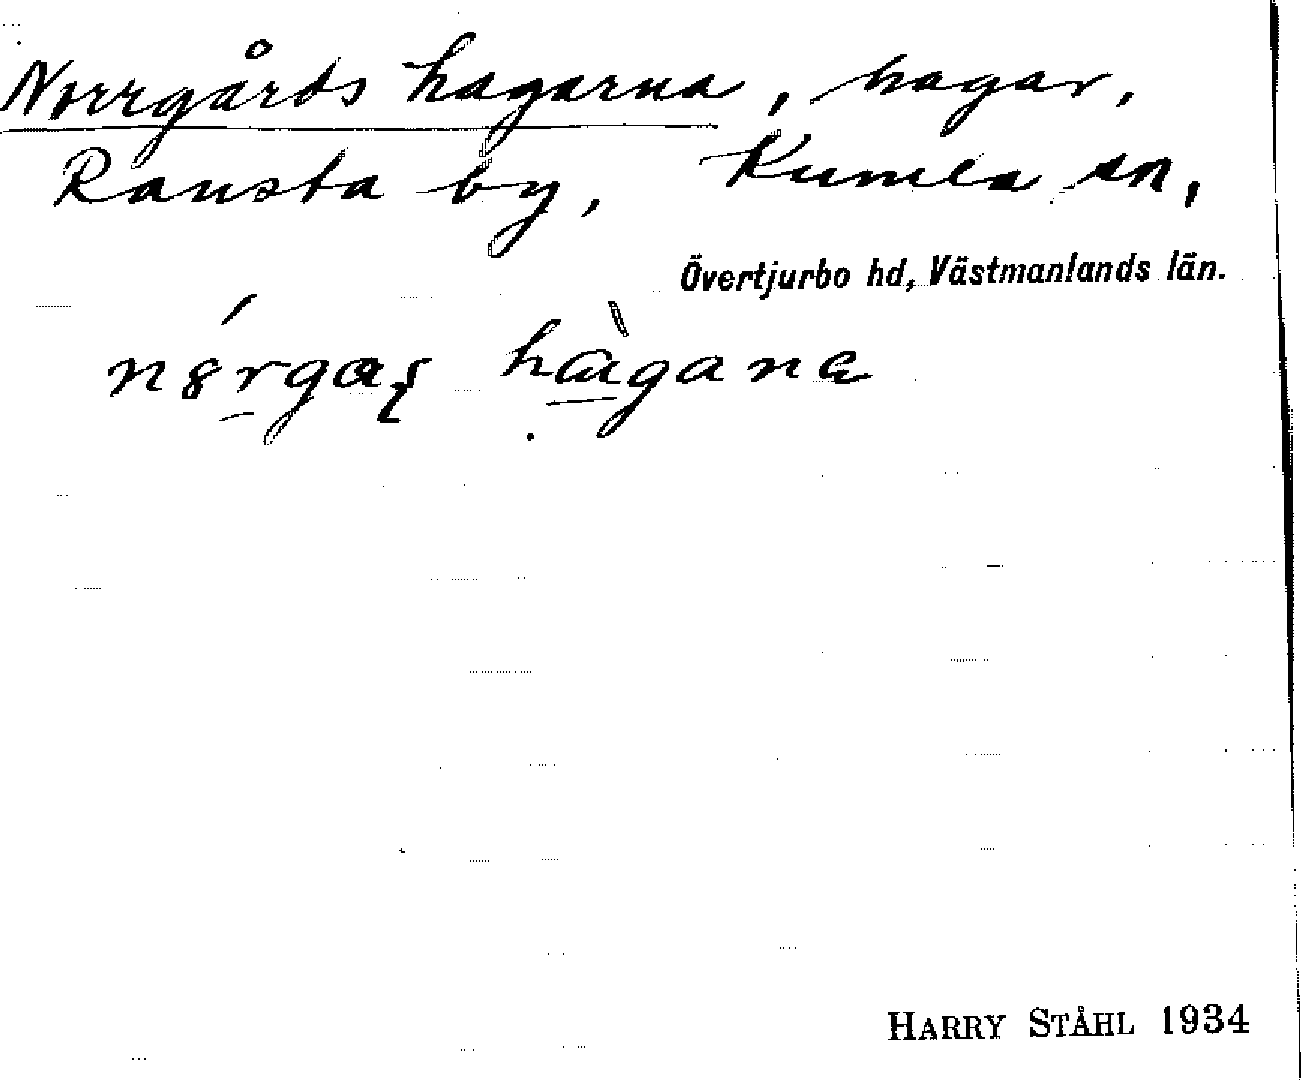 Norrgårds hagarna, hagar,
Ransta by, Kumla sn,
Övertjurbo hd, Västmanlands län.
HARRY STÅHL 1934